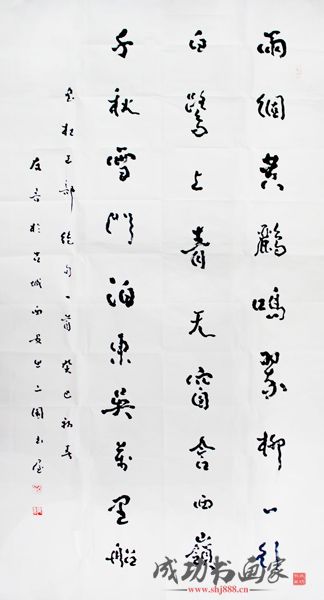 兩個黃鸝鳴翠柳一行
白鷺上青天窗含西嶺
千秋雪門泊東吳萬里船
杜工部絕句一首癸巳初
於古城西安
成功书画家
www.shj888.cn